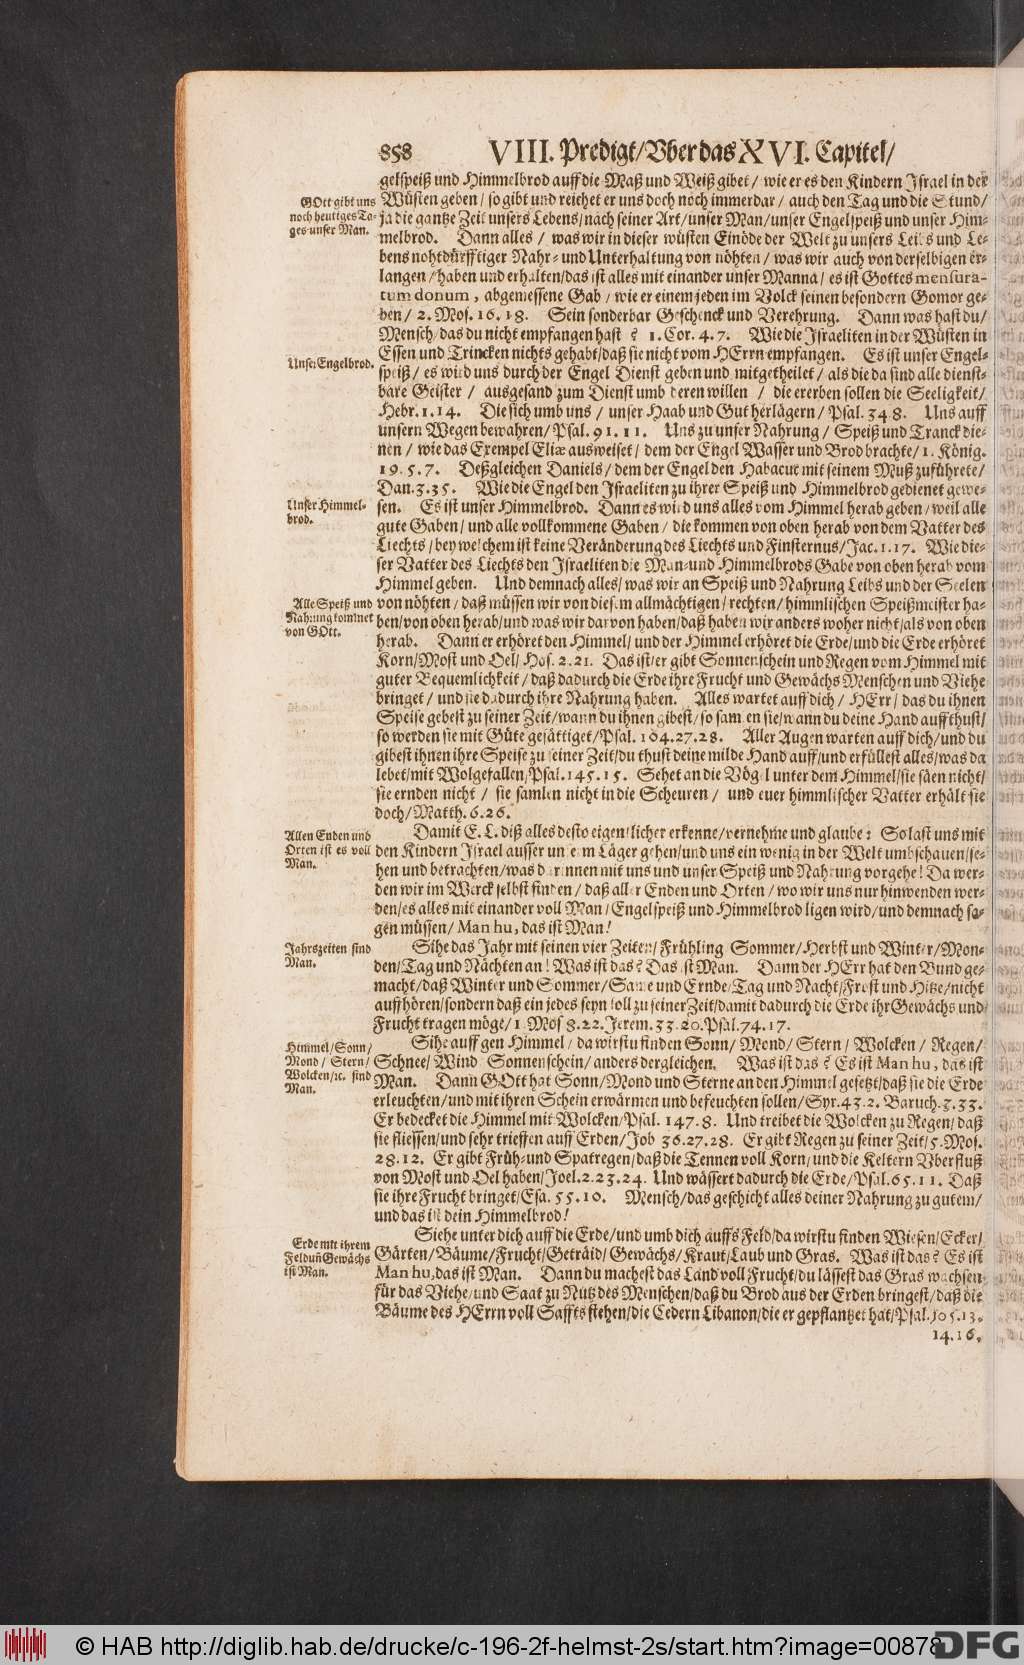 858 VIII. Predigt/Vber das XVI. Capitel/
gelspeiß und Himmelbrod auff die Maß und Weiß gibet/ wie er es den Kindern Israel in der
GOtt gibt uns noch heutiges Tages unser Man.
Wüsten geben/ so gibt und reichet er uns doch noch immerdar/ auch den Tag und die Stund/
ja die gantze Zeit unsers Lebens/nach seiner Art/unser Man/unser Engelspeiß und unser Him-
melbrod. Dann alles/ was wir in dieser wüsten Einöde der Welt zu unsers Leibs und Le-
bens nohtdürfftiger Nahr- und Unterhaltung von nöhten/ was wir auch von derselbigen er-
langen/haben und erhalten/das ist alles mit einander unser Manna/ es ist Gottes mensura-
tum donum, abgemessene Gab/ wie er einem jeden im Volck seinen besondern Gomor ge-
ben/ 2. Mos. 16. 18. Sein sonderbar Geschenck und Verehrung. Dann was hast du/
Mensch/das du nicht empfangen hast? 1. Cor. 4. 7. Wie die Israeliten in der Wüsten in
Unser Engelbrod.
Essen und Trincken nichts gehabt/daß sie nicht vom HErrn empfangen. Es ist unser Engel-
speiß/ es wird uns durch der Engel Dienst geben und mitgetheilet/ als die da sind alle dienst-
bare Geister/ ausgesand zum Dienst umb deren willen/ die ererben sollen die Seeligkeit/
Hebr. 1. 14. Die sich umb uns/ unser Haab und Gut herlägern/ Psal. 34 8. Uns auff
unsern Wegen bewahren/Psal. 91. 11. Uns zu unser Nahrung/ Speiß und Tranck die-
nen/ wie das Exempel Eliæ ausweiset/ dem der Engel Wasser und Brod brachte/1. König.
19. 5. 7. Deßgleichen Daniels/dem der Engel den Habacuc mit seinem Muß zuführete/
Dan. 3. 35. Wie die Engel den Israeliten zu ihrer Speiß und Himmelbrod gedienet gewe-
Unser Himmelbrod.
sen. Es ist unser Himmelbrod. Dann es wird uns alles vom Himmel herab geben/weil alle
gute Gaben/und alle vollkommene Gaben/ die kommen von oben herab von dem Vatter des
Liechts/bey welchem ist keine Veränderung des Liechts und Finsternus/Jac. 1. 17. Wie die-
ser Vatter des Liechts den Israeliten die Man- und Himmelbrods Gabe von oben herab vom
Himmel geben. Und demnach alles/ was wir an Speiß und Nahrung Leibs und der Seelen
Alle Speiß und Nahrung kommet von GOtt.
von nöhten/ daß müssen wir von diesem allmächtigen/rechten/himmlischen Speißmeister ha-
ben/von oben herab/und was wir darvon haben/daß haben wir anders woher nicht/als von oben
herab. Dann er erhöret den Himmel/und der Himmel erhöret die Erde/und die Erde erhöret
Korn/Most und Oel/ Hos. 2. 21. Das ist/er gibt Sonnenschein und Regen vom Himmel mit
guter Bequemlichkeit/ daß dadurch die Erde ihre Frucht und Gewächs Menschen und Viehe
bringet/ und sie dadurch ihre Nahrung haben. Alles wartet auff dich/ HErr/ das du ihnen
Speise gebest zu seiner Zeit/wann du ihnen gibest/so samlen sie/wann du deine Hand auffthust/
so werden sie mit Güte gesättiget/Psal. 104. 27. 28. Aller Augen warten auff dich/und du
gibest ihnen ihre Speise zu seiner Zeit/du thust deine milde Hand auff/und erfüllest alles/was da
lebet/mit Wolgefallen/Psal. 145. 15. Sehet an die Vögel unter dem Himmel/sie säen nicht/
sie ernden nicht/ sie samlen nicht in die Scheuren/ und euer himmlischer Vatter erhält sie
doch/Matth. 6. 26.
Allen Enden und Orten ist es voll Man.
Damit E. L. diß alles desto eigentlicher erkenne/vernehme und glaube: So last uns mit
den Kindern Israel ausser unserm Läger gehen/und uns ein wenig in der Welt umbschauen/se-
hen und betrachten/was darinnen mit uns und unser Speiß und Nahrung vorgehe! Da wer-
den wir im Werck selbst finden/ daß aller Enden und Orten/ wo wir uns nur hinwenden wer-
den/es alles mit einander voll Man/Engelspeiß und Himmelbrod ligen wird/und demnach sa-
gen müssen/ Man hu, das ist Man!
Jahrszeiten sind Man.
Sihe das Jahr mit seinen vier Zeiten/ Frühling Sommer/Herbst und Winter/Mon-
den/Tag und Nächten an! Was ist das? Das ist Man. Dann der HErr hat den Bund ge-
macht/daß Winter und Sommer/Saame und Ernde/Tag und Nacht/Frost und Hitze/nicht
auffhören/sondern daß ein jedes seyn soll zu seiner Zeit/damit dadurch die Erde ihr Gewächs und
Frucht tragen möge/1. Mos 8. 22. Jerem. 33. 20. Psal. 74. 17.
Himmel/Sonn/ Mond/ Stern/ Wolcken/ec. sind Man.
Sihe auff gen Himmel/ da wirstu finden Sonn/ Mond/ Stern/ Wolcken/ Regen/
Schnee/ Wind Sonnenschein/anders dergleichen. Was ist das? Es ist Man hu, das ist
Man. Dann GOtt hat Sonn/Mond und Sterne an den Himmel gesetzt/daß sie die Erde
erleuchten/und mit ihren Schein erwärmen und befeuchten sollen/Syr. 43. 2. Baruch. 3. 33.
Er bedecket die Himmel mit Wolcken/Psal. 147. 8. Und treibet die Wolcken zu Regen/ daß
sie fliessen/und sehr trieffen auff Erden/Job 36. 27. 28. Er gibt Regen zu seiner Zeit/5. Mos.
28. 12. Er gibt Früh- und Spatregen/daß die Tennen voll Korn/und die Keltern Vberfluß
von Most und Oel haben/Joel. 2. 23. 24. Und wässert dadurch die Erde/Psal. 65. 11. Daß
sie ihre Frucht bringet/Esa. 55. 10. Mensch/das geschicht alles deiner Nahrung zu gutem/
und das ist dein Himmelbrod!
Erde mit ihrem Feld uñ Gewächs ist Man.
Siehe unter dich auff die Erde/und umb dich auffs Feld/da wirstu finden Wiesen/Ecker/
Gärten/Bäume/Frucht/Geträid/Gewächs/Kraut/Laub und Gras. Was ist das? Es ist
Man hu, das ist Man. Dann du machest das Land voll Frucht/du lässest das Gras wachsen
für das Viehe/und Saat zu Nutz des Menschen/daß du Brod aus der Erden bringest/daß die
Bäume des HErrn voll Saffts stehen/die Cedern Libanon/die er gepflantzet hat/Psal. 105. 13.
14. 16.
© HAB http://diglib.hab.de/drucke/c-196-2f-helmst-2s/start.htm?image=00878
DFG